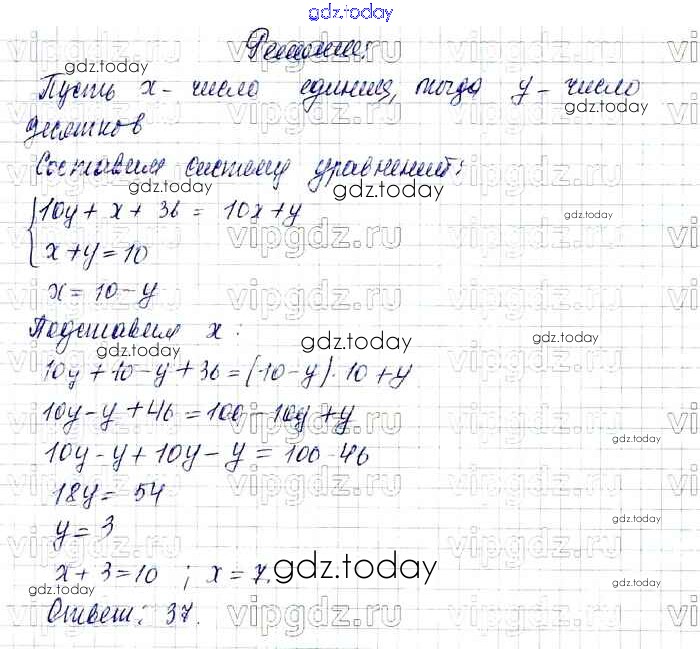 gdz.today
Решение:
gdz.today
Пусть x - число единиц, тогда y - число
gdz.today
десятков
Составим систему уравнений:
gdz.today
gdz.today
10y + x + 36 = 10x + y
gdz.today
vipgdz.ru
x + y = 10
x = 10 - y
vipgdz.ru
Подставим x:
gdz.today
gdz.today
gdz.today
10y + 10 - y + 36 = (10 - y) · 10 + y
10y - y + 46 = 100 - 10y + y
gdz.today
10y - y + 10y - y = 100 - 46
18y = 54
vipgdz.ru
gdz.today
y = 3
x + 3 = 10 ; x = 7.
gdz.today
gdz.today
gdz.today
Ответ: 37.
vipgdz.ru